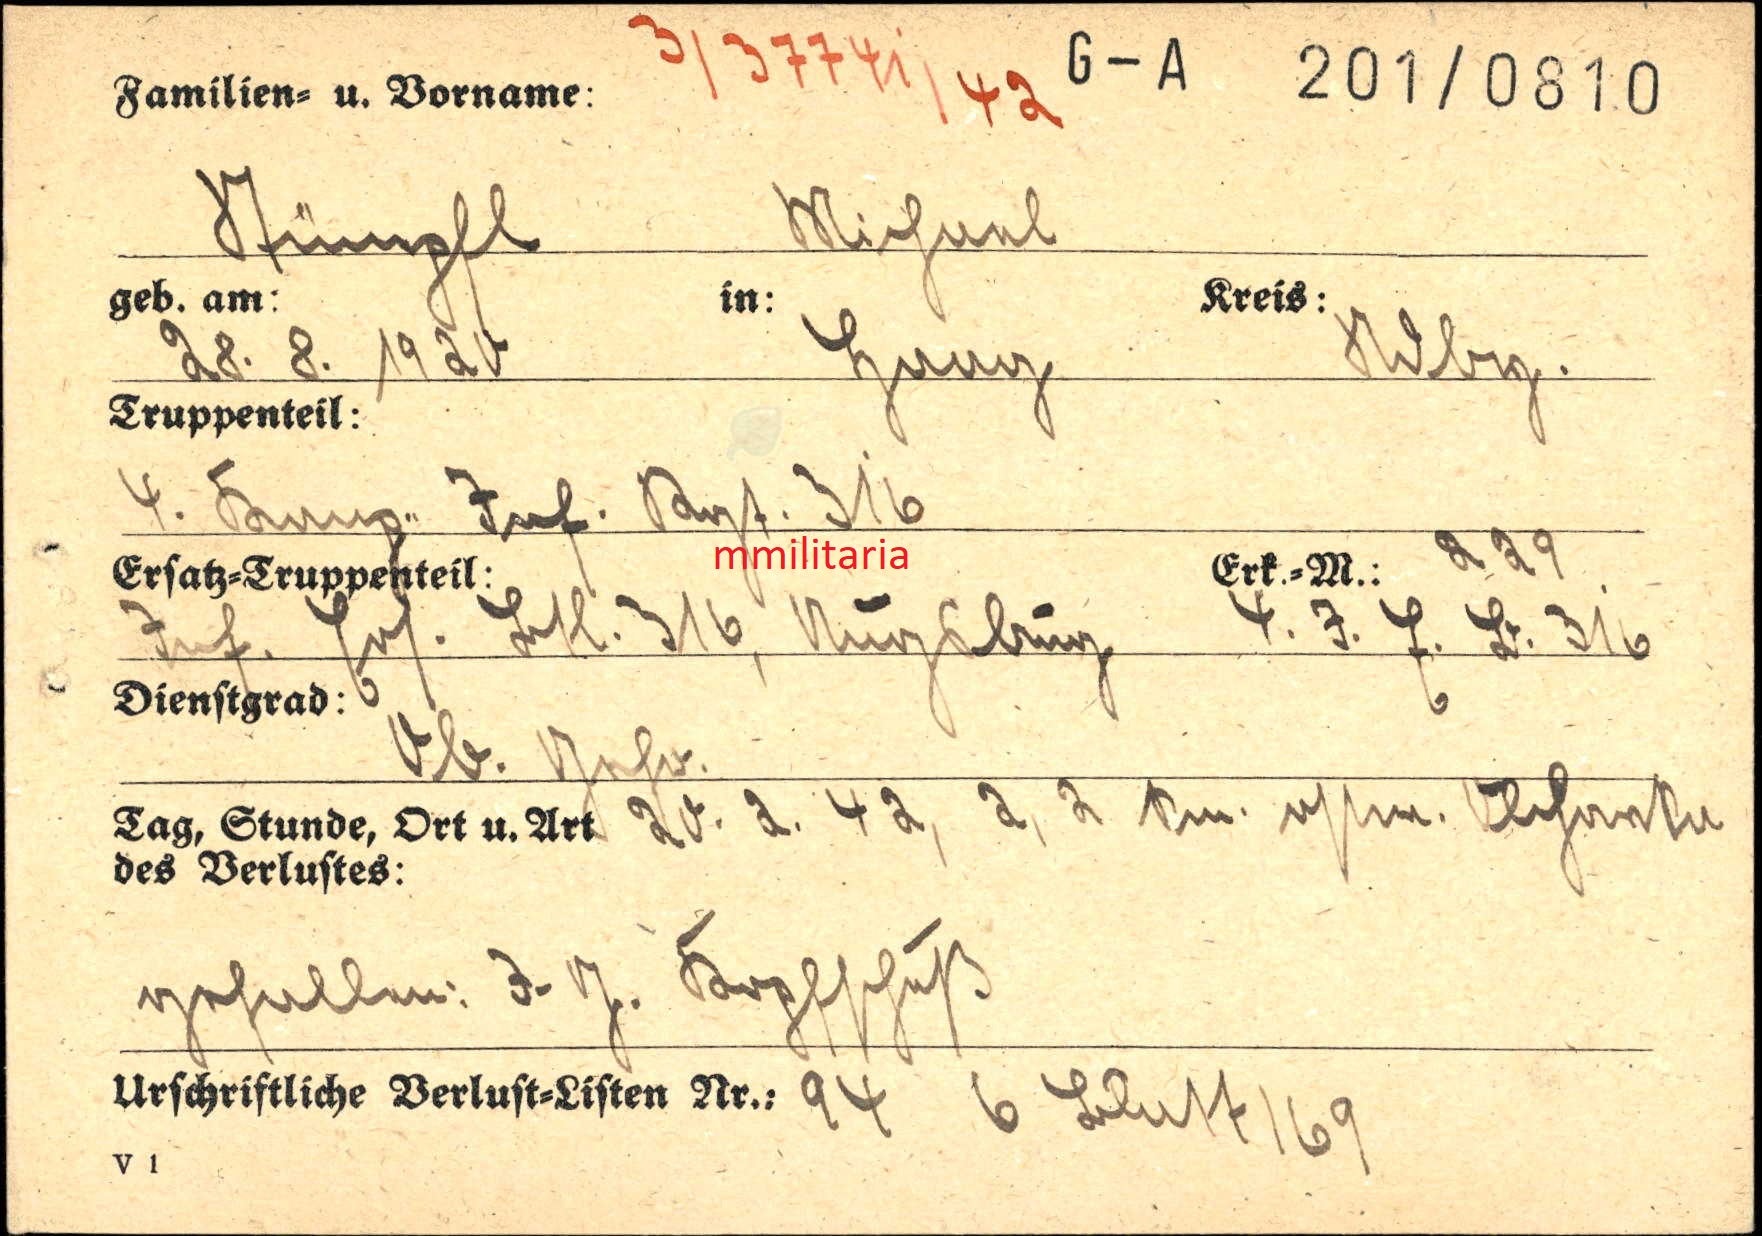 3/37741/42 G-A 201/0810
Familien- u. Vorname:
Stümpfl Michael
geb. am: in: Kreis:
28. 8. 1920 Haag Ndbg.
Truppenteil:
4. Komp. Inf. Rgt. 316
mmilitaria
Ersatz-Truppenteil: Erk.-M.: 229
Inf. Ers. Btl. 316, Augsburg 4. I. E. B. 316
Dienstgrad:
Ob. Gefr.
Tag, Stunde, Ort u. Art 20. 2. 42, 2,2 km. ostw.
des Verlustes:
gefallen: I. G. Kopfschuß
Urschriftliche Verlust-Listen Nr.: 94 6 Blatt/69
V 1